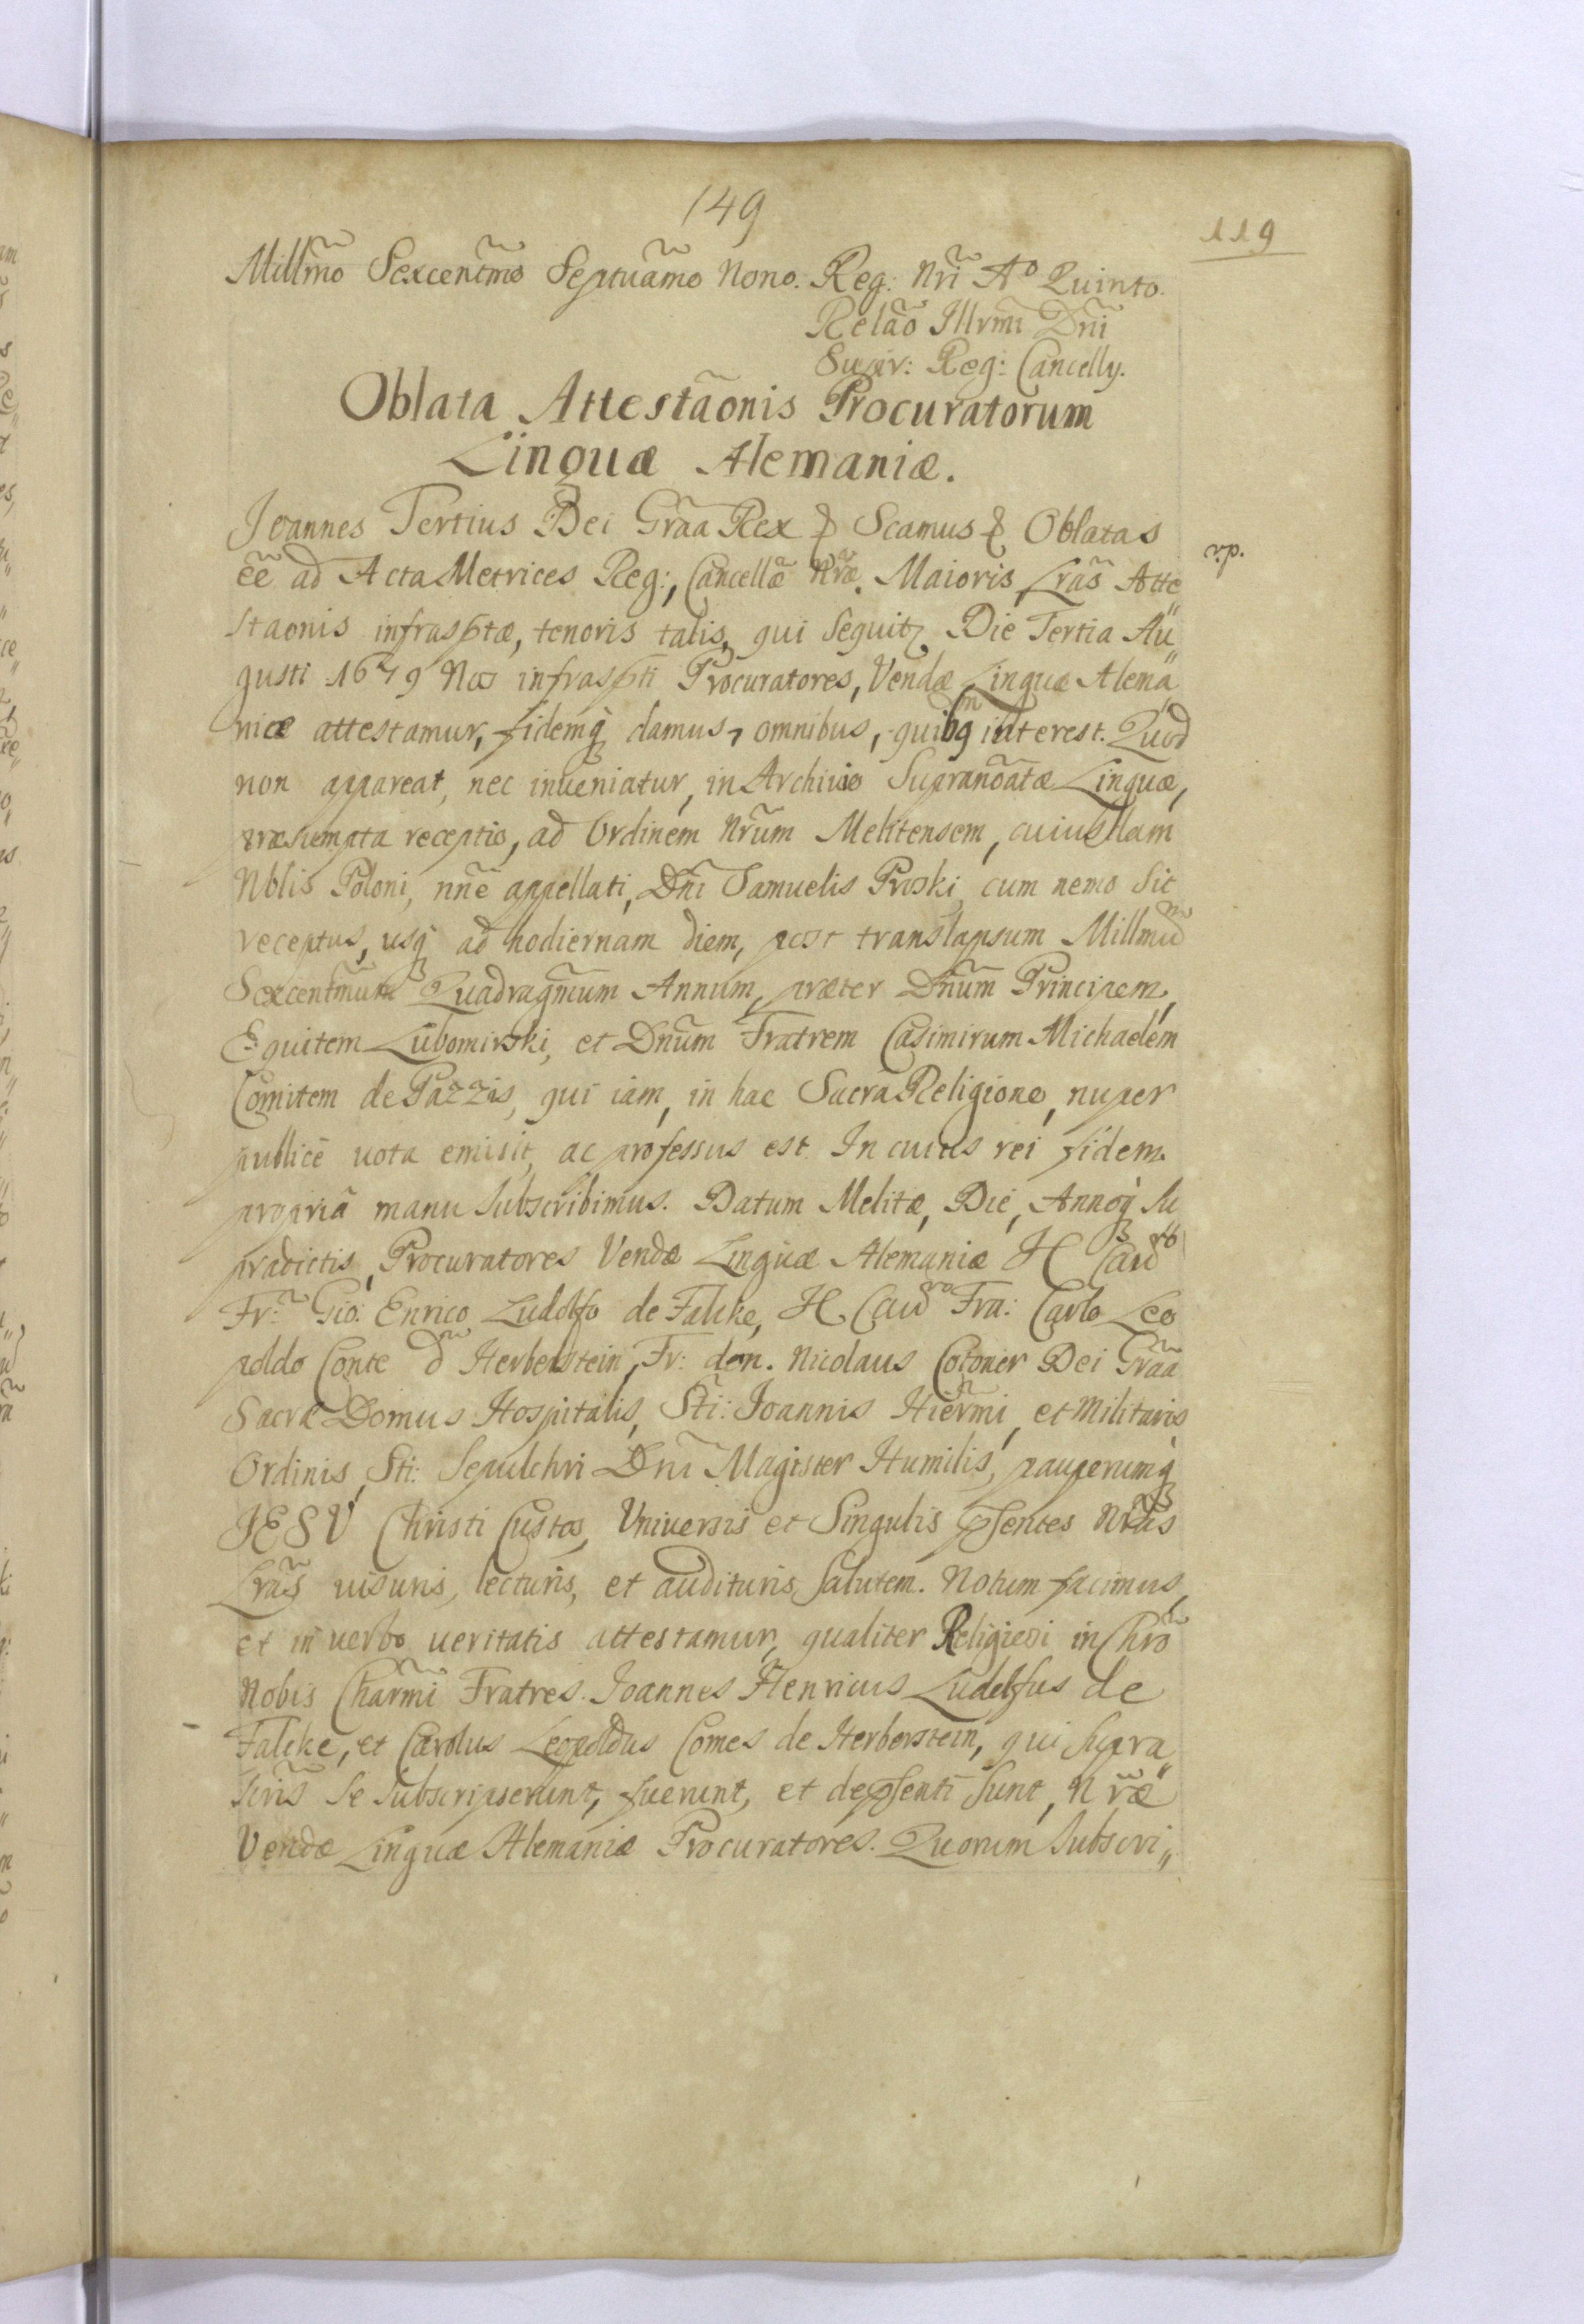 149
119
Millm̃o Sexcentm̃o Septuãmo Nono. Reg: Nr̃i Aº Quinto.
Relão Illrmi Dñi
Supr: Reg: Cancelly.
Oblata Attestãonis Procuratorum
Linguæ Alemaniæ.
Joannes Tertius Dei Grãa Rex & Scamus & Oblatas
r.p.
eẽ ad Acta Metrices Reg:, Cancellæ Nr̃æ. Maioris, Lrãs Atte
staonis infrasptæ, tenoris talis, qui Sequitz Die Tertia Au„
gusti 1679 Nos infraspti Procuratores, Vendæ Linguæ Alema„
nicæ attestamur, fidemq damus, omnibus, quibq interest. Quod
non appareat, nec inveniatur, in Archivio Supranõatæ Linguæ,
præsumpta receptio, ad Ordinem Nr̃um Melitensem, cuiusdam
Nblis Poloni, nñe appellati, Dñi Samuelis Proski, cum nemo sit
receptus, usq ad hodiernam diem, post translapsum Millmũ
Sexcentm̃um Quadragm̃um Annum, præter Dñum Principem,
Equitem Lubomirski, et Dñum Fratrem Casimirum Michaelem
Comitem de Pazzis, qui iam, in hac Sacra Religione, nuper
publicè vota emisit, ac professus est. In cuius rei fidem
propriâ manu Subscribimus. Datum Melitæ, Die, Annoq Su
pradictis, Procuratores Vendæ Linguæ Alemaniæ Il Cauʳᵒ
Fr: Gio: Enrico Ludolfo de Falcke, Il Cauʳᵒ Fra: Carlo Leo
poldo Conte d̃ Herberstein, Fr: don. Nicolaus Cotoner Dei Grãa
Sacræ Domus Hospitalis, Sti: Joannis Hierm̃i, et Militaris
Ordinis, Sti: Sepulchri Dñi Magister Humilis, pauperumq
JESV Christi Custos, Universis et Singulis pſentes Nrãs
Lrãs visuris, lecturis, et audituris, Salutem. Notum facimus,
et in verbo veritatis attestamur, qualiter Religiosi in Chrõ
Nobis Charm̃i Fratres. Joannes Henricus Ludolfus de
Falcke, et Carolus Leopoldus Comes de Herberstein, qui Supra„
scris se subscripserunt, fuerunt, et de pſenti Sunt, Nr̃æ
Vendæ Linguæ Alemaniæ Procuratores. Quorum Subscri„